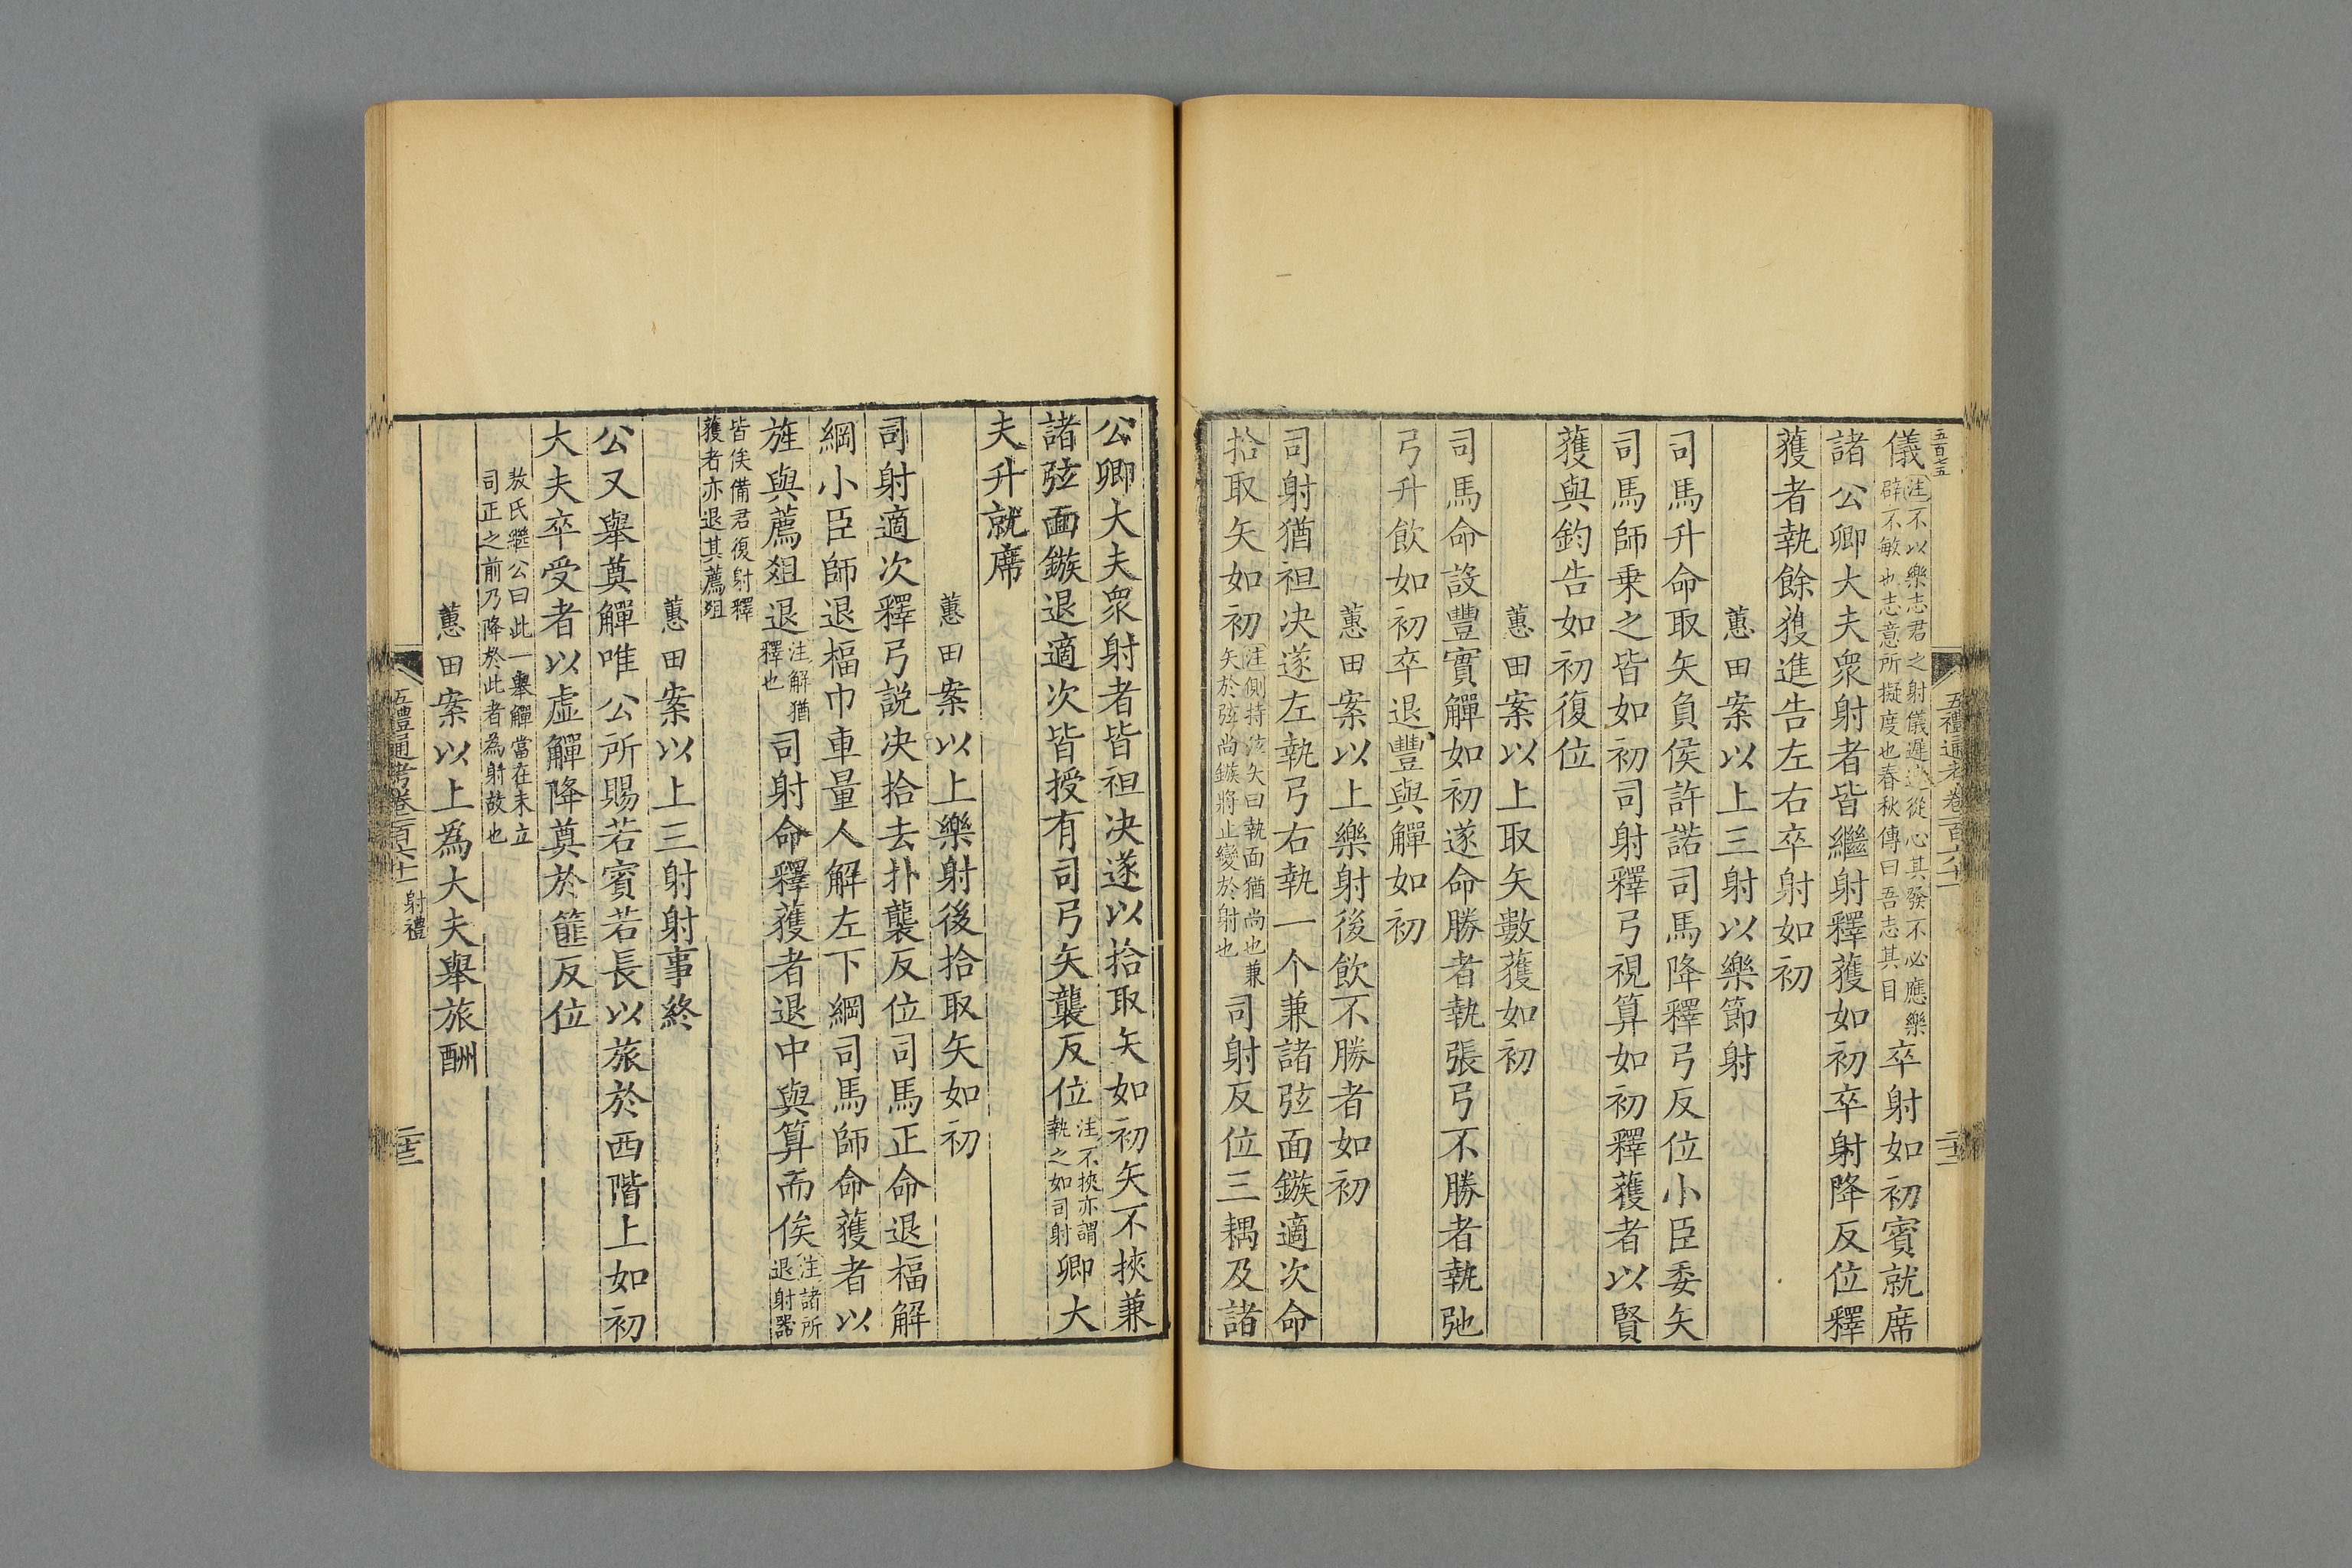 五百七五
五禮通考卷一百六十一
二十二
儀注不以樂志君之射儀遲速從心其發不必應樂辟不敏也志意所擬度也春秋傳曰吾志其目卒射如初賓就席
諸公卿大夫眾射者皆繼射釋獲如初卒射降反位釋
獲者執餘獲進告左右卒射如初
蕙田案以上三射以樂節射
司馬升命取矢負侯許諾司馬降釋弓反位小臣委矢
司馬師乗之皆如初司射釋弓視算如初釋獲者以賢
獲與鈞告如初復位
蕙田案以上取矢數獲如初
司馬命設豐實觶如初遂命勝者執張弓不勝者執弛
弓升飲如初卒退豐與觶如初
蕙田案以上樂射後飲不勝者如初
司射猶袒决遂左執弓右執一个兼諸弦面鏃適次命
拾取矢如初注側持弦矢曰執面猶尚也兼矢於弦尚鏃將止變於射也司射反位三耦及諸
公卿大夫眾射者皆袒决遂以拾取矢如初矢不挾兼
諸弦面鏃退適次皆授有司弓矢襲反位注不挾亦謂執之如司射卿大
夫升就席
蕙田案以上樂射後拾取矢如初
司射適次釋弓説决拾去扑襲反位司馬正命退楅解
綱小臣師退楅巾車量人解左下綱司馬師命獲者以
旌與薦俎退注解猶釋也司射命釋獲者退中與算而俟注諸所退射器
皆俟備君復射釋獲者亦退其薦俎
蕙田案以上三射射事終
公又舉奠觶唯公所賜若賓若長以旅於西階上如初
大夫卒受者以虛觶降奠於篚反位
敖氏繼公曰此一舉觶當在未立司正之前乃降於此者為射故也
蕙田案以上為大夫舉旅酬
五禮通考卷一百六十一 射禮
二十三